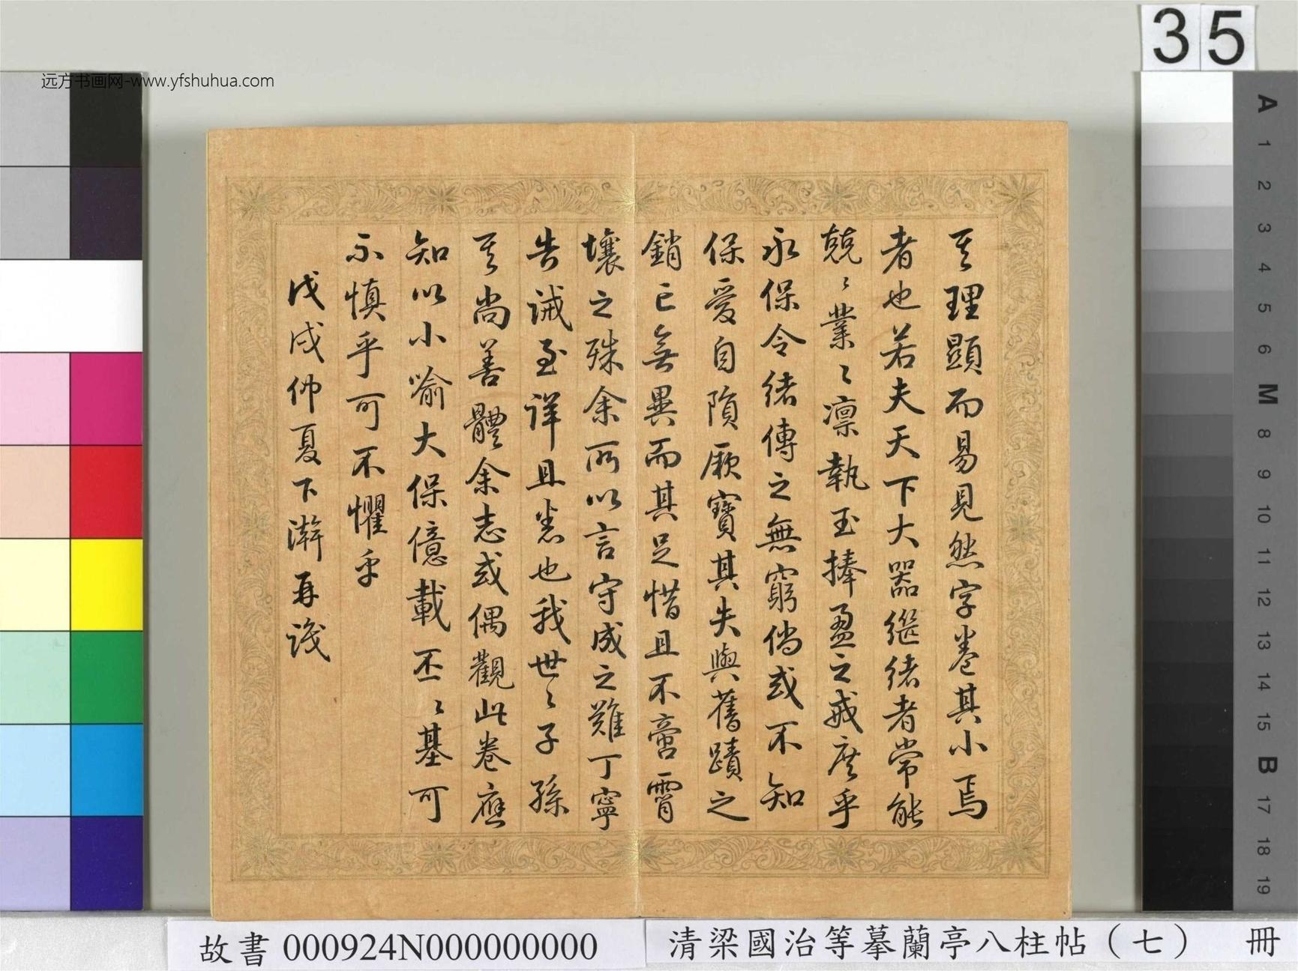 远方书画网-www.yfshuhua.com
35
其理顯而易見然字卷其小焉
者也若夫天下大器繼緒者常能
兢〻業〻凜執玉捧盈之戒庶乎
永保令緒傳之無窮倘或不知
保愛自隕厥寶其失與舊蹟之
銷亡無異而其足惜且不啻霄
壤之殊余所以言守成之難丁寧
告誡至詳且悉也我世〻子孫
其尚善體余志或偶觀此卷應
知以小喻大保億載丕〻基可
不慎乎可不懼乎
戊戌仲夏下澣再識
A 1 2 3 4 5 6 M 8 9 10 11 12 13 14 15 B 17 18 19
故書 000924N000000000
清梁國治等摹蘭亭八柱帖（七） 冊